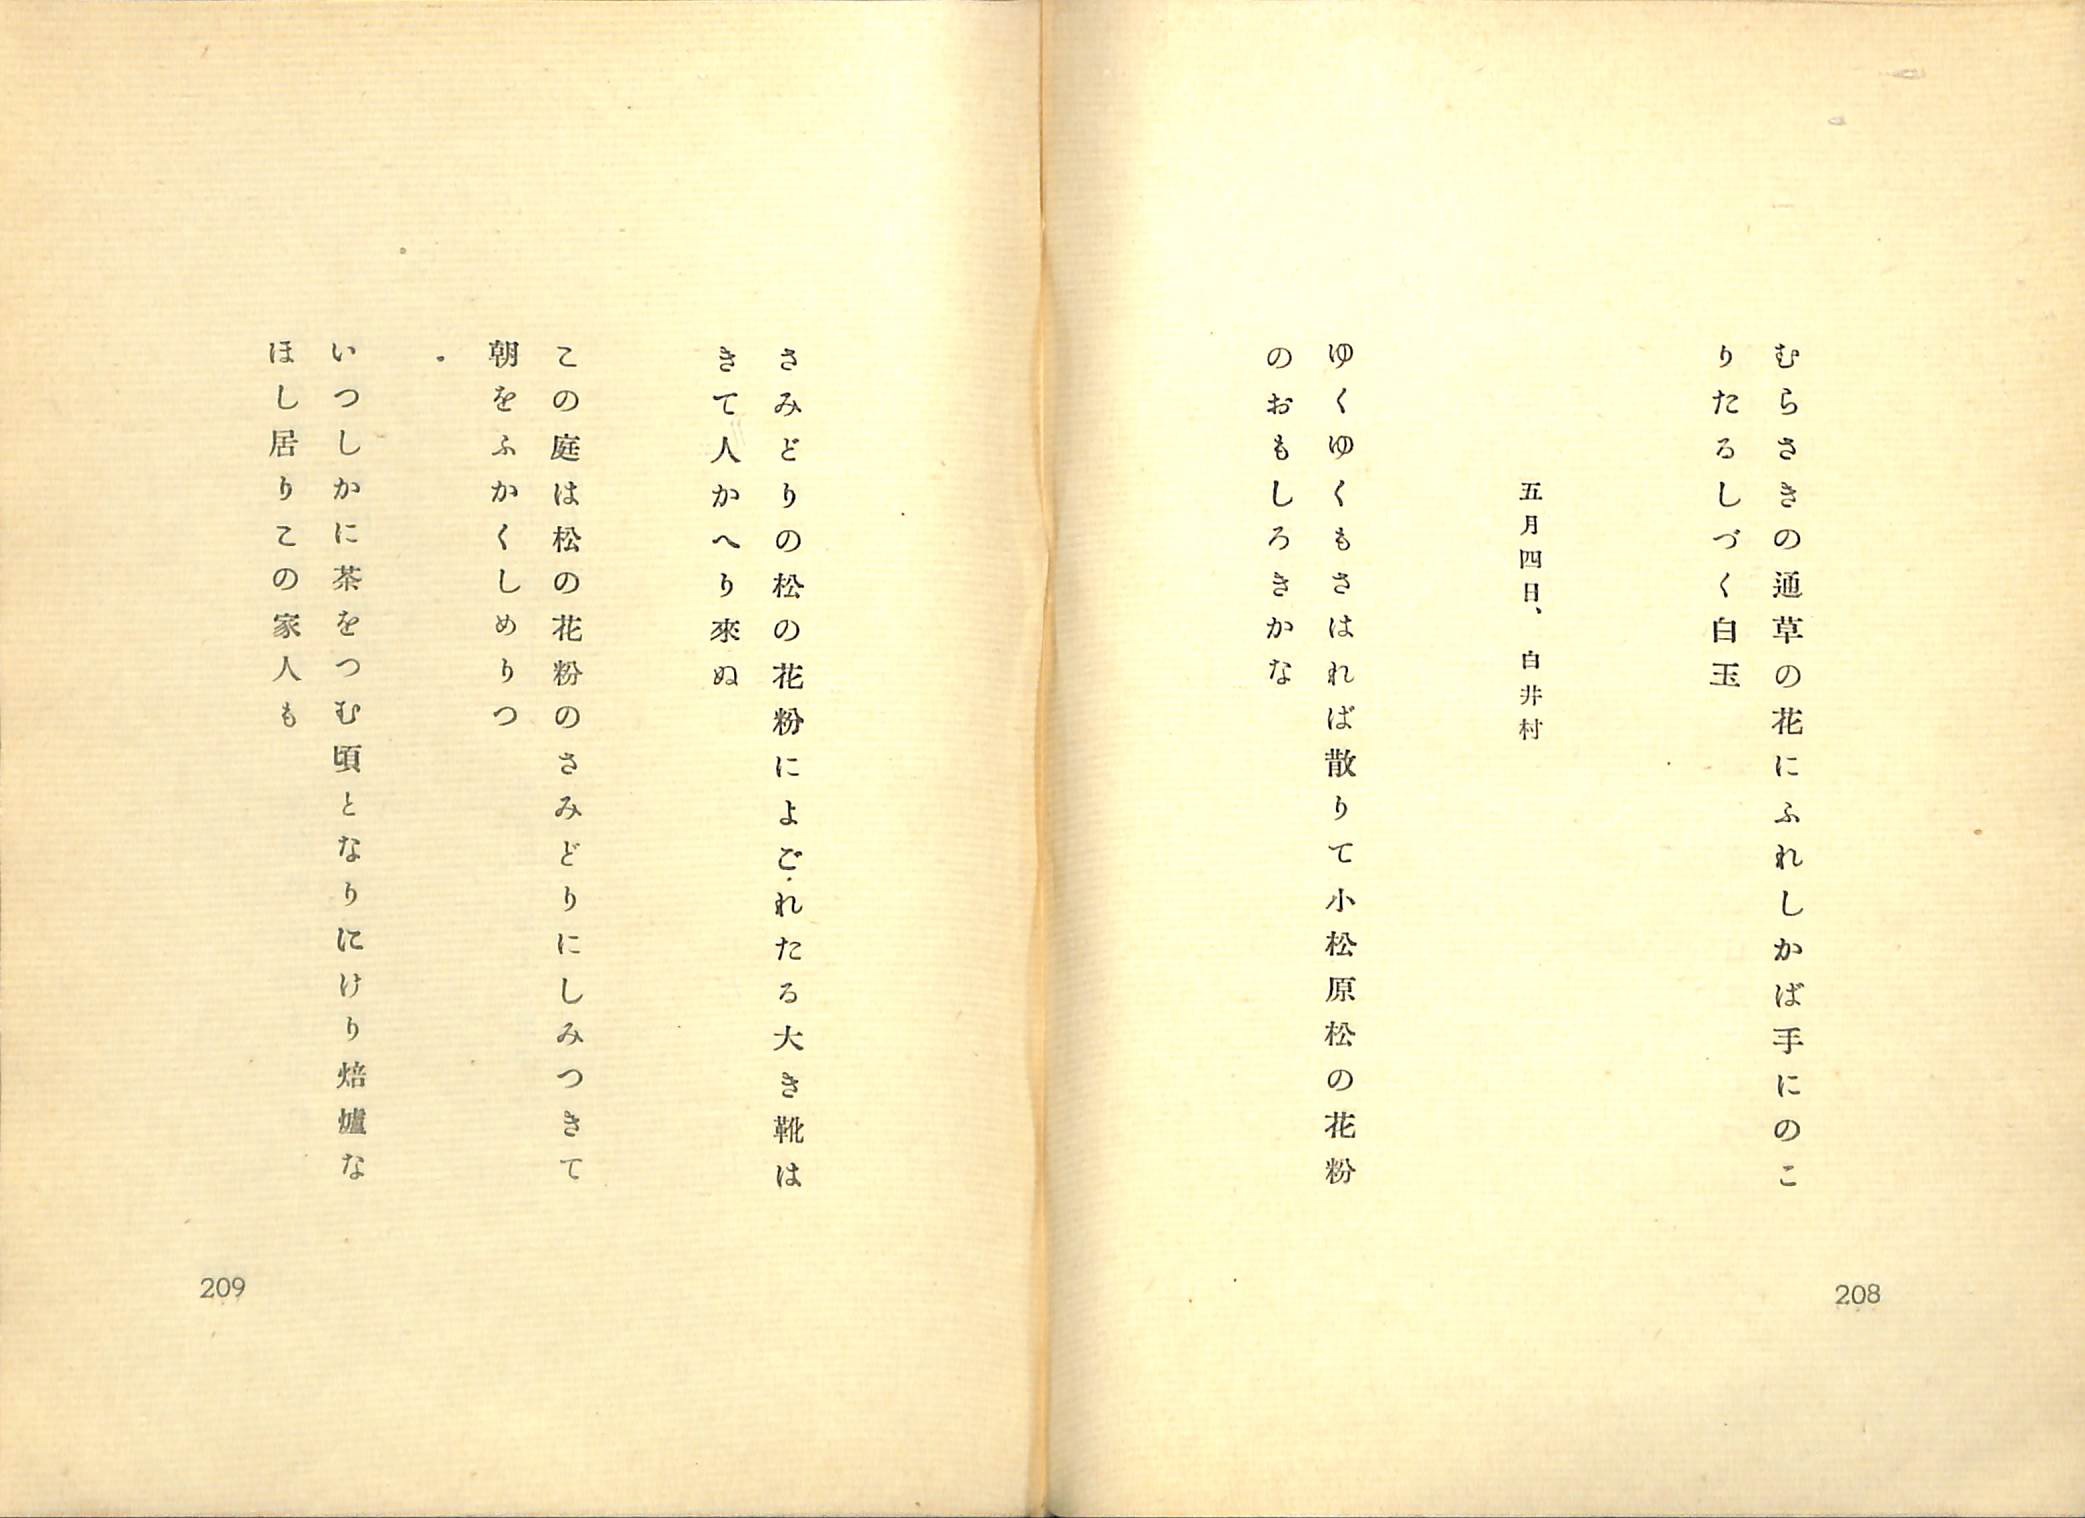 むらさきの通草の花にふれしかば手にのこ
りたるしづく白玉
五月四日、白井村
ゆくゆくもさはれば散りて小松原松の花粉
のおもしろきかな
208
さみどりの松の花粉によごれたる大き靴は
きて人かへり來ぬ
この庭は松の花粉のさみどりにしみつきて
朝をふかくしめりつ
いつしかに茶をつむ頃となりにけり焙爐な
ほし居りこの家人も
209